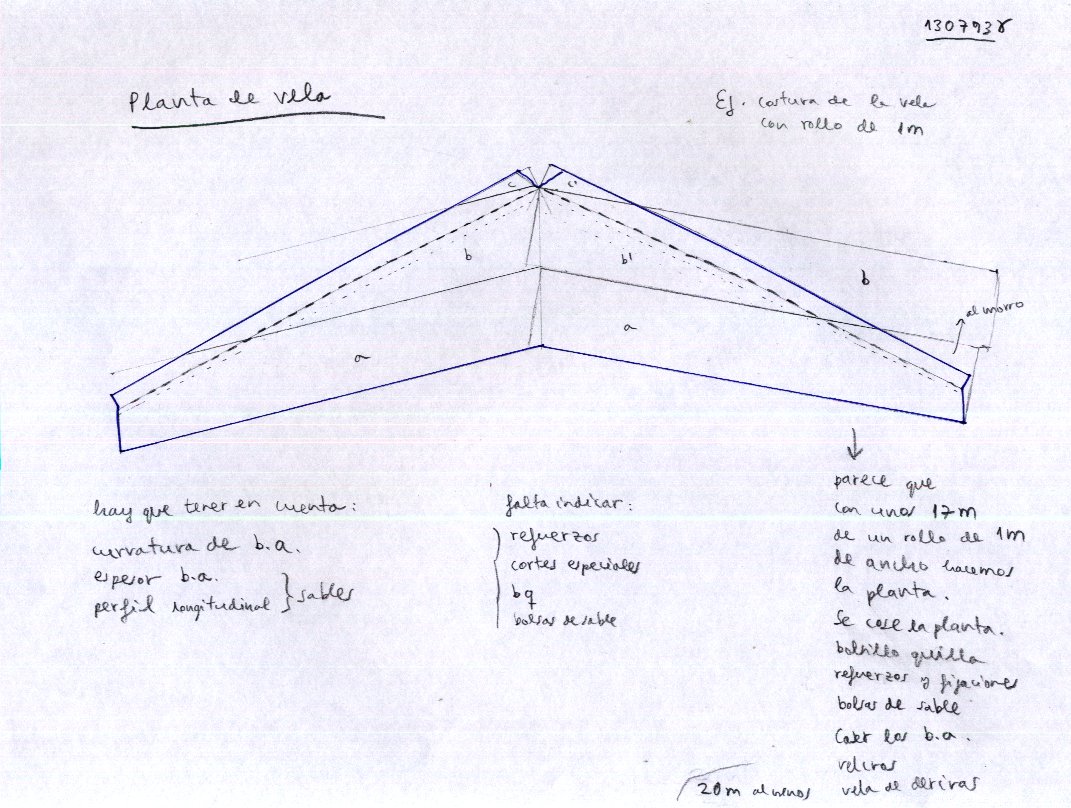 130793γ
Planta de vela
Ej. costura de la vela
con rollo de 1m
c c'
b b'
b
al morro
a
a
hay que tener en cuenta:
curvatura de b.a.
espesor b.a.
perfil longitudinal } sables
falta indicar:
refuerzos
cortes especiales
bq
bolsas de sable
parece que
con unos 17m
de un rollo de 1m
de ancho hacemos
la planta.
Se cose la planta.
bolsillo quilla
refuerzos y fijaciones
bolsas de sable
Coser los b.a.
velcros
20m al menos vela de derivas